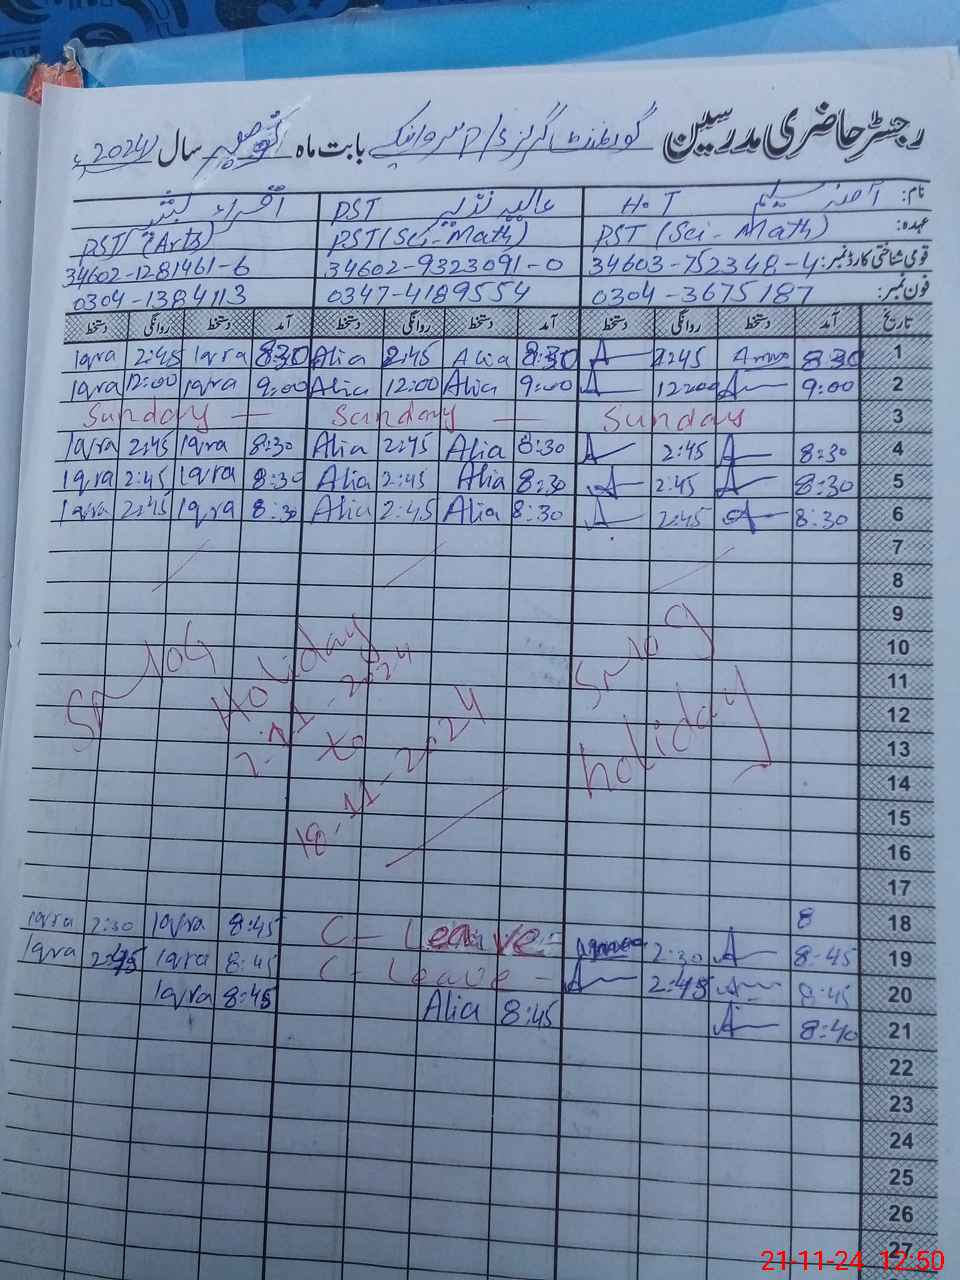 رجسٹر حاضری مدرسین گورنمنٹ گرلز بابت ماہ سال 2024ء
نام: آمنہ سلیم H.T عالیہ نذیر PST اقراء
عہدہ: PST (Sci - Math) PST (Sci-Math) PST (Arts)
قومی شناختی کارڈ نمبر: 34603-752348-4 34602-9323091-0 34602-1281461-6
فون نمبر: 0304-3675187 0347-4189554 0304-1384113
تاریخ آمد دستخط روانگی دستخط آمد دستخط روانگی دستخط آمد دستخط روانگی دستخط
Iqra 2:45 Iqra 8:30 Alia 2:45 Alia 8:30 2:45 8:30 1
Iqra 12:00 Iqra 9:00 Alia 12:00 Alia 9:00 1200 9:00 2
Sunday — Sunday — Sunday 3
Iqra 2:45 Iqra 8:30 Alia 2:45 Alia 8:30 2:45 8:30 4
Iqra 2:45 Iqra 8:30 Alia 2:45 Alia 8:30 2:45 8:30 5
Iqra 2:45 Iqra 8:30 Alia 2:45 Alia 8:30 2:45 8:30 6
7
8
9
10
11
12
13
14
15
16
17
Smog Holiday
7-11-2024
to
18-11-2024
Smog
holiday
8 18
Iqra 2:30 Iqra 8:45 C- Leave 2:30 8:45 19
Iqra 2:45 Iqra 8:45 C- Leave - 2:45 8:45 20
Iqra 8:45 Alia 8:45 8:40 21
22
23
24
25
26
27
21-11-24 12:50